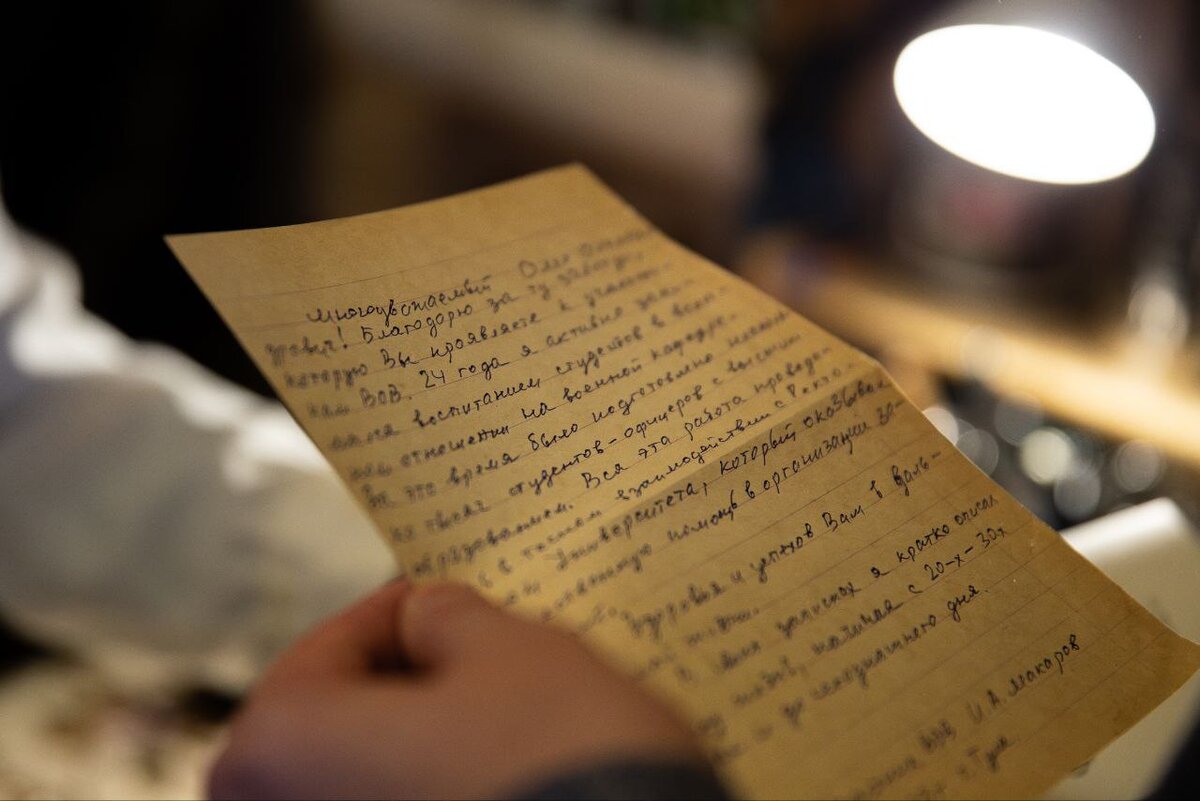 Многоуважаемый Олег
! Благодорю за ту заботу,
которую Вы проявляете к участни-
кам ВОВ. 24 года я активно зани-
мался воспитанием студентов в воен-
ном отношении на военной кафедре.
За это время было подготовлено несколь-
ко тысяч студентов-офицеров с высшим
образованием. Вся эта работа проведе-
на в тесном взаимодействии с Ректо-
Университета, который оказывал
помощь в организации
Здоровья и успехов Вам в даль-
жизни.
В записках я кратко описал
начиная с 20-х-30х
и до сегодняшнего дня.
ВОВ И.А. Макаров
г. Тула